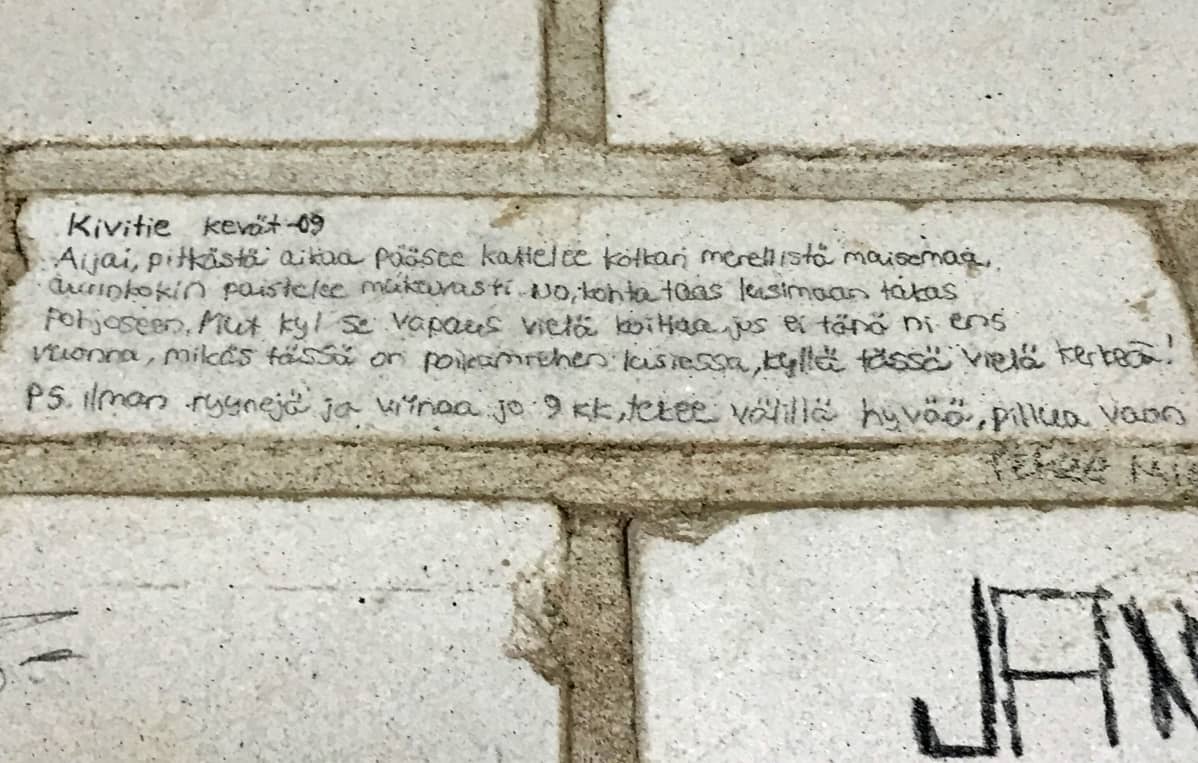 Kivitie kevät-09
Aijai, pitkästä aikaa pääsee kattelee kotkan merellistä maisemaa,
aurinkokin paistelee mukavasti. No, kohta taas lusimaan takas
Pohjoseen. Mut kyl se vapaus vielä koittaa, jos ei tänä ni ens
vuonna, mikäs tässä on poikamiehen lusiessa, kyllä tässä vielä kerkeä!
PS. ilman ryynejä ja viinaa jo 9 kk, tekee välillä hyvää, pillua vaan
JAN